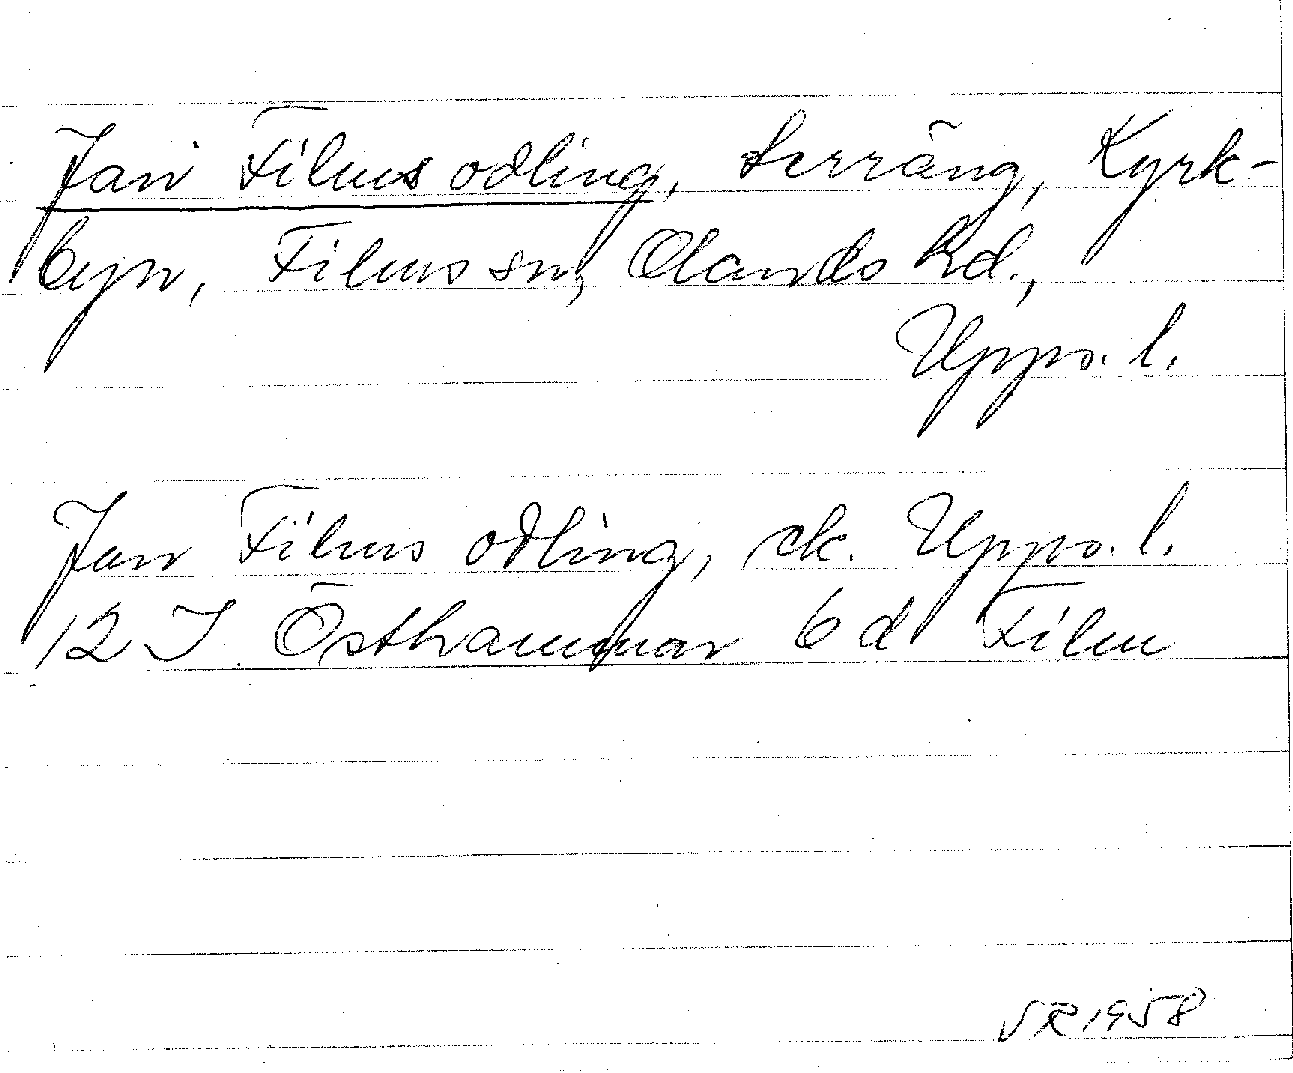 Jan Films odling, terräng, Kyrk-
byn, Films sn, Olands hd.,
Upps. l.
Jan Films odling, ek. Upps. l.
12 I Östhammar 6 d Film
VR 1958